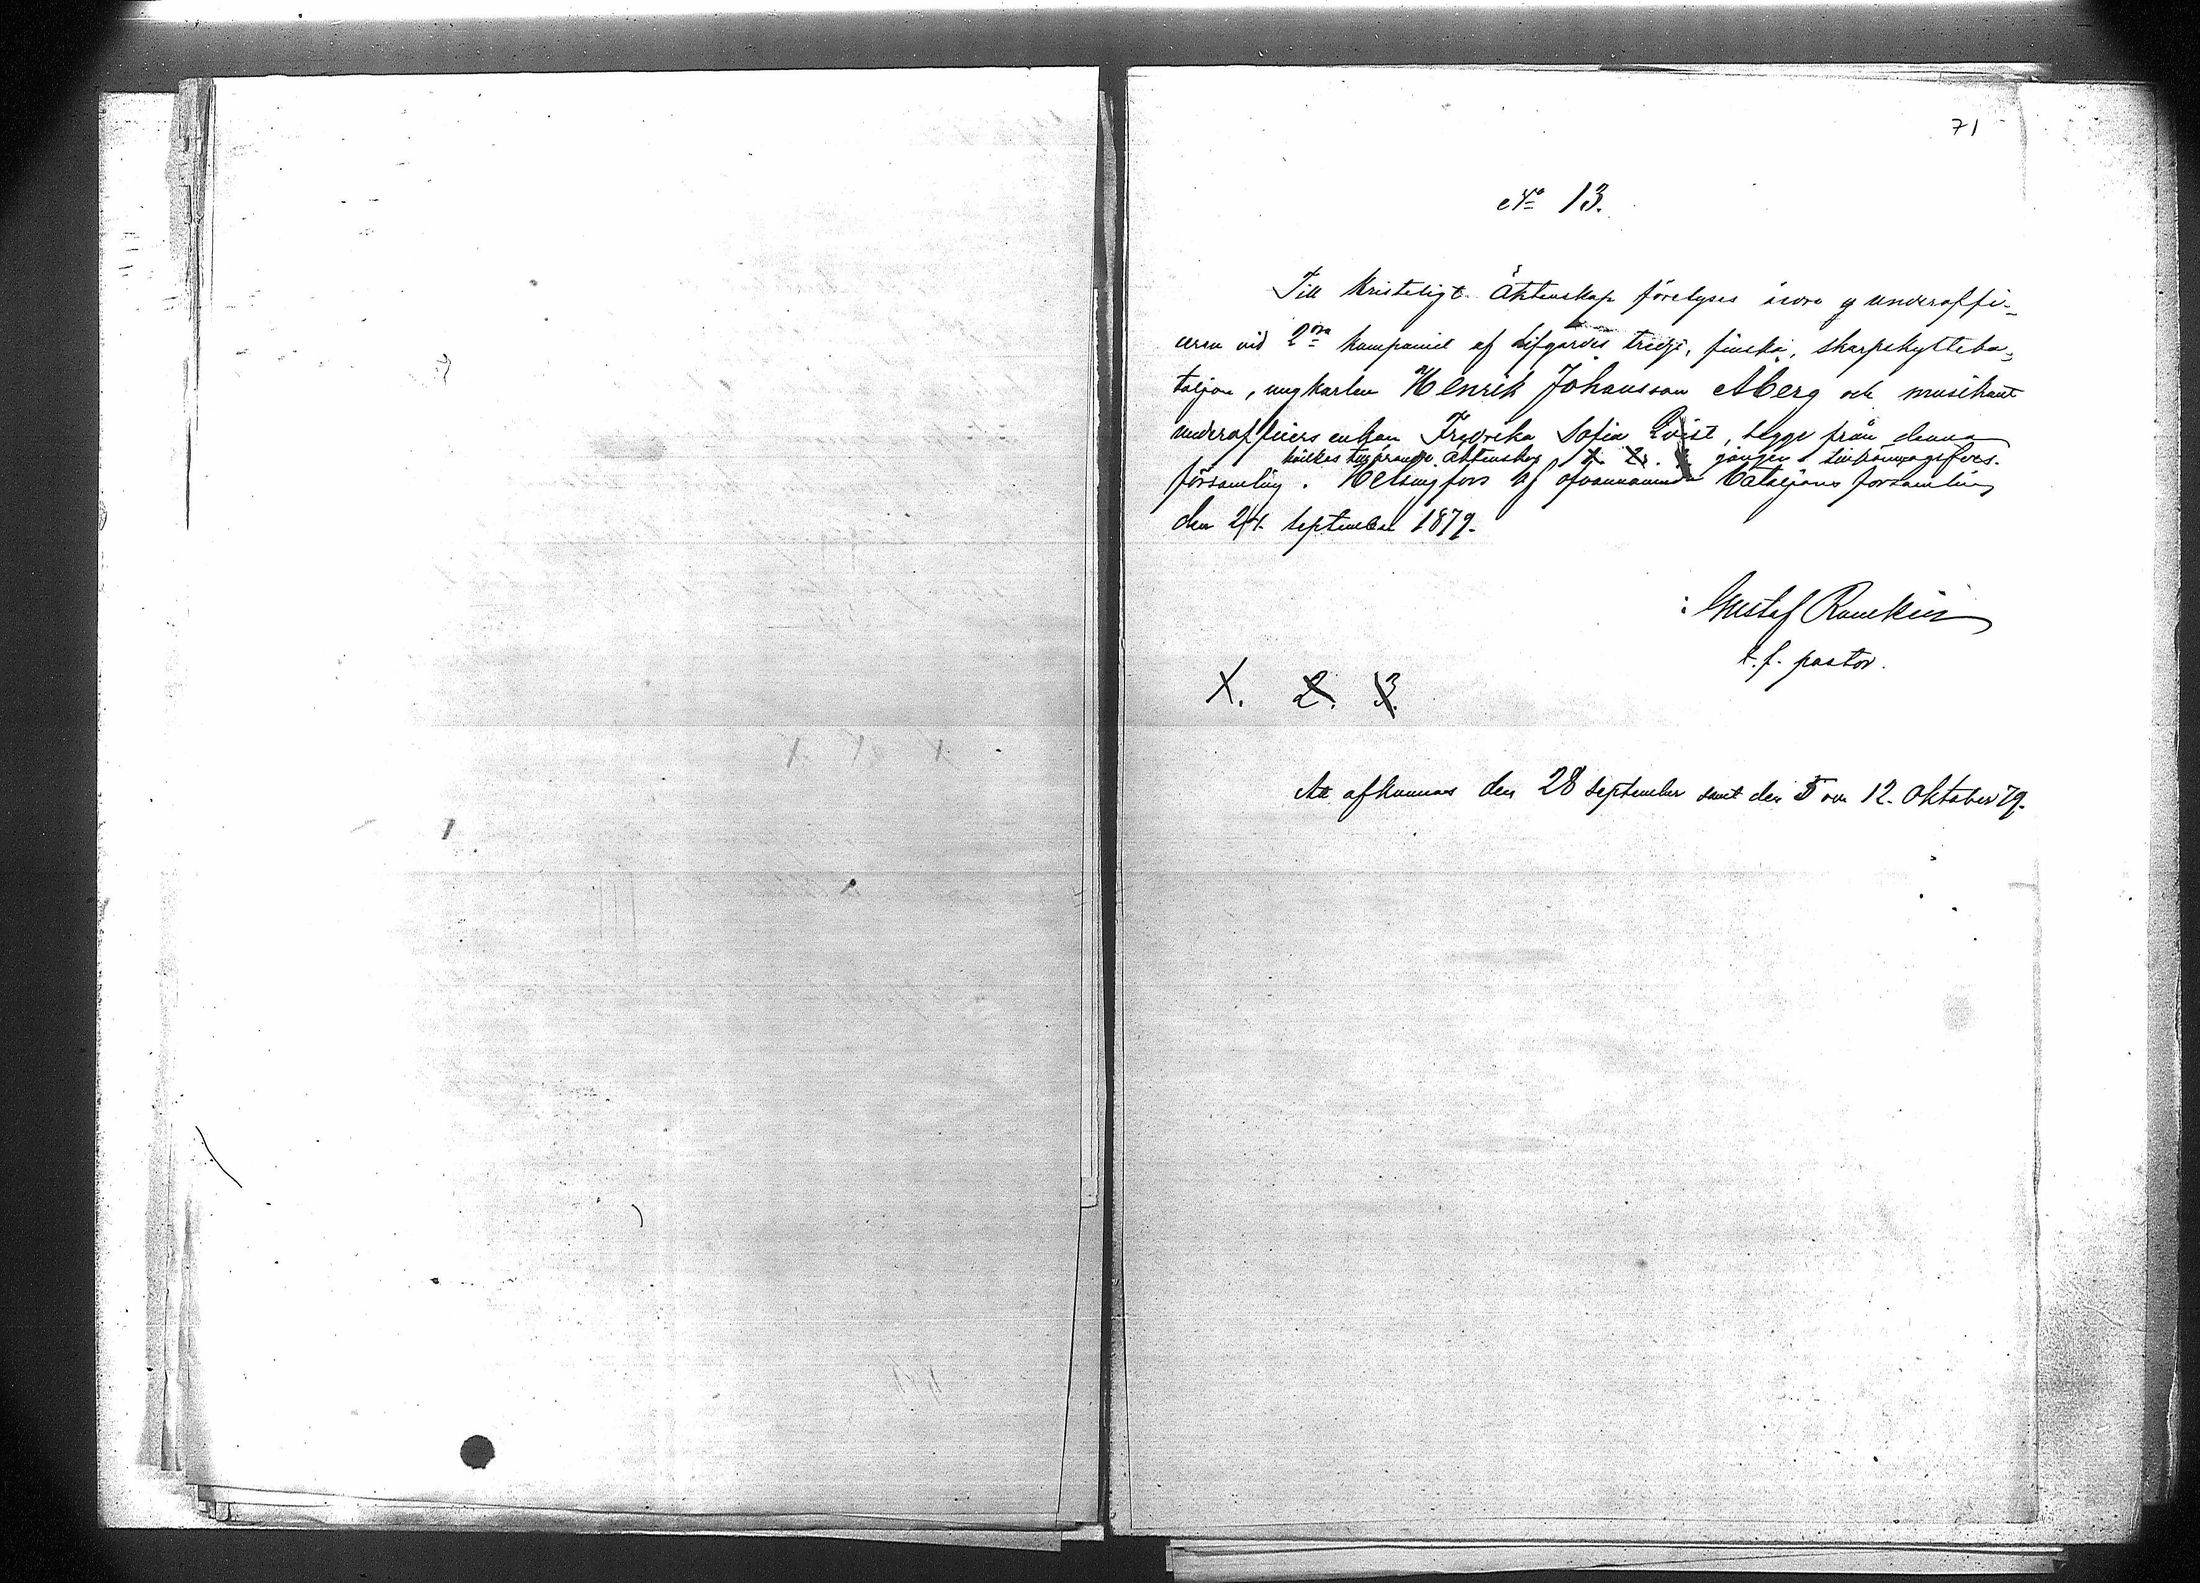 71
No 13.
Till kristeligt äktenskap förelyses underoffi-
ceren vid 2dra kompaniet af Lifgardes tredje, finska, skarpskytteba-
taljon, ungkarlen Henrik Johansson Åberg och musikant
underofficers enkan Fredrika Sofia Qvist, begge från denna
hvilkas tillernade äktenskap 1. 2. 3 gången
församling. Helsingfors af ofvannämnde bataljons församling
den 24. September 1879.
Gustaf
t.f. pastor.
1. 2. 3.
Att afkunnas den 28 September samt den 5 och 12. Oktober 79.